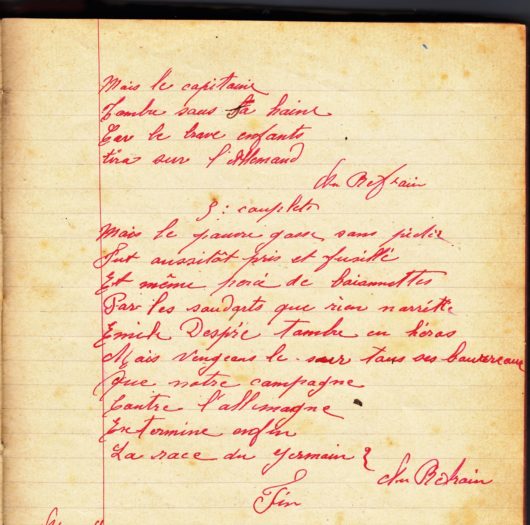 Mais le capitaine
Tombe sans sa haine
Car le brave enfants
tira sur l'Allemand
Au Refrain
3: couplets
Mais le pauvre gosse sans pitié
Fut aussitôt pris et fusillé
Et même percé de baïonnettes
Par les soudarts que rien n'arrête
Emile Despré tombe en héros
Mais vengeons le sur tous ses bourreaux
Que notre campagne
Contre l'allemagne
Extermine enfin
La race du germain }
Au Refrain
Fin